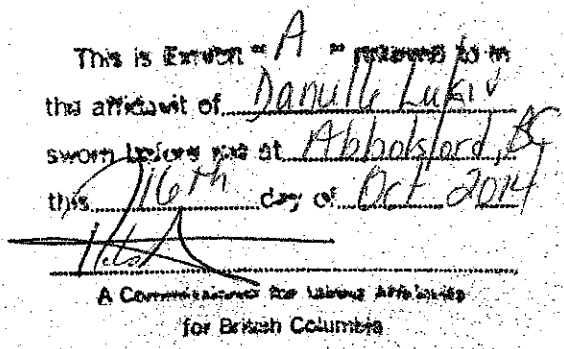 This is Exhibit "A" referred to in
the affidavit of Danielle Lukiv
sworn before me at Abbotsford, BC
this 16th day of Oct 2014
A Commissioner for taking Affidavits
for British Columbia